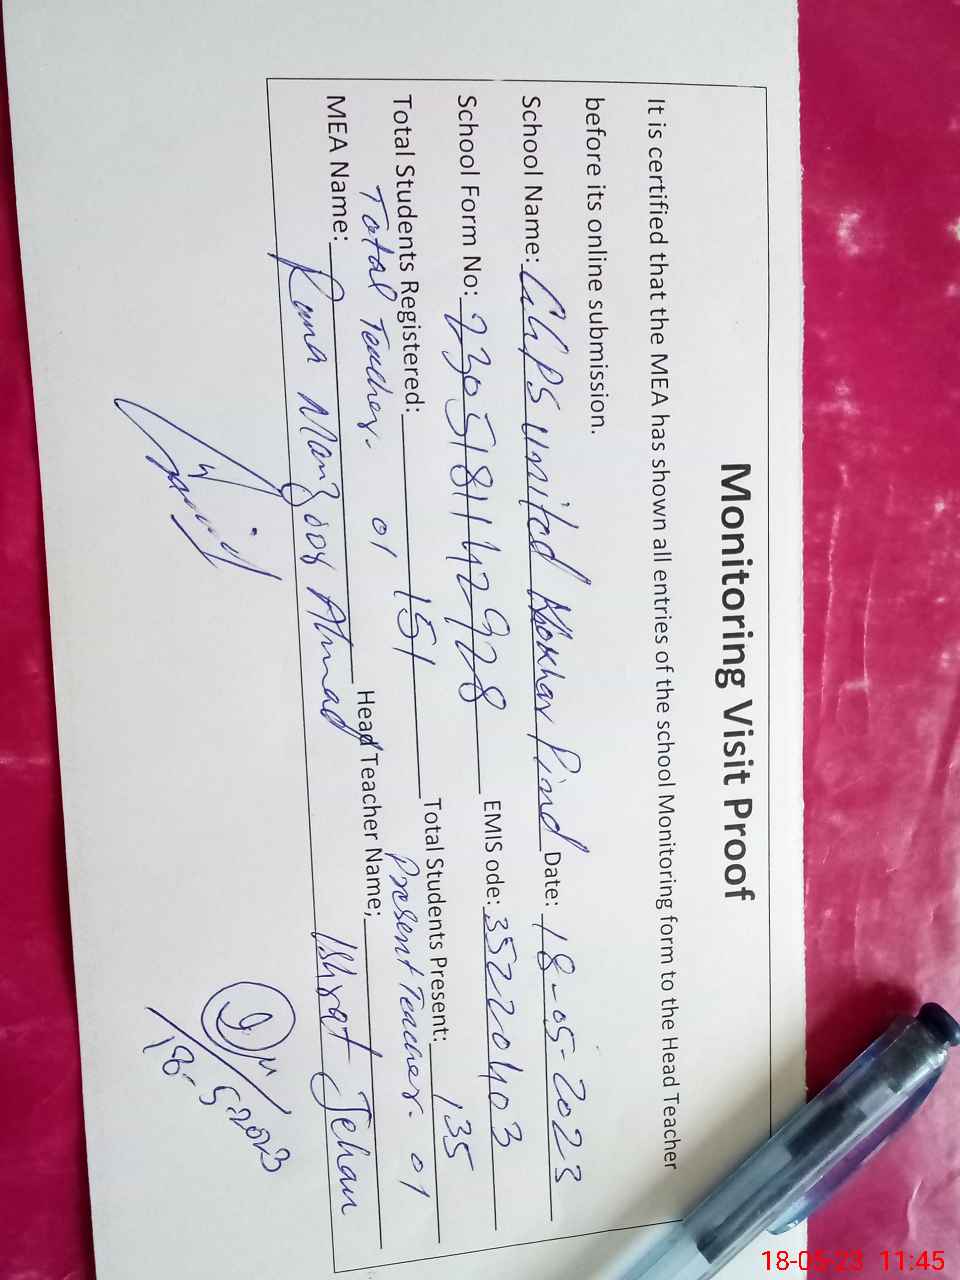 Monitoring Visit Proof
It is certified that the MEA has shown all entries of the school Monitoring form to the Head Teacher
before its online submission.
School Name: GGPS United Khokhar Pind Date: 18-05-2023
School Form No: 2305181142928 EMIS ode: 35220403
Total Students Registered: 151 Total Students Present: 135
Total Teacher. 01 Present Teacher. 01
MEA Name: Rana Manzoor Ahmad Head Teacher Name; Ishrat Jehan
18-5-2023
18-05-23 11:45